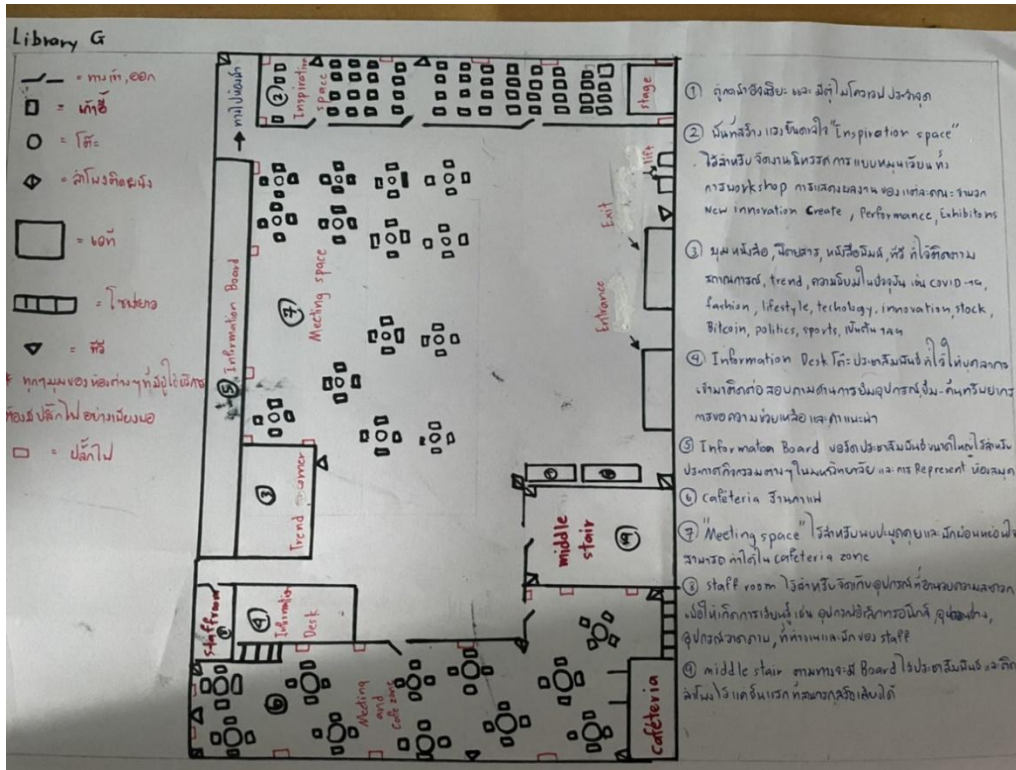 Library G
= ทางเข้า,ออก
= เก้าอี้
= โต๊ะ
= ลำโพงติดผนัง
= เวที
= โซฟายาว
= ทีวี
* ทุกๆมุมของห้องต่างๆที่มีผู้ใช้บริการ
ต้องมีปลั๊กไฟอย่างเพียงพอ
= ปลั๊กไฟ
ทางไปห้องน้ำ
② Inspiration
space
stage
lift
Exit
Entrance
⑤ Information Board
⑦ Meeting space
③ Trend corner
① ⑧
middle
stair
⑨
staff room
④ Information
Desk
⑥ Meeting
and
Cafe zone
Cafeteria
① ตู้กดน้ำอัจฉริยะ และ มีตู้ไมโครเวฟ ประจำจุด
② พื้นที่สร้างแรงบันดาลใจ "Inspiration space"
ไว้สำหรับ จัดงานนิทรรศการแบบหมุนเวียน ทั้ง
การ workshop การแสดงผลงาน ของแต่ละคณะ จำพวก
New innovation Create , Performance, Exhibitons
③ มุมหนังสือ, นิตยสาร, หนังสือพิมพ์, ทีวี ที่ไว้ติดตาม
สถานการณ์, trend, ความนิยมในปัจจุบัน เช่น COVID-19,
fashion, lifestyle, techology, innovation, stock,
Bitcoin, politics, sports, เป็นต้น ฯลฯ
④ Information Desk โต๊ะประชาสัมพันธ์ที่ไว้ให้บุคลากร
เข้ามาติดต่อสอบถามด้านการยืมอุปกรณ์, ยืม-คืนทรัพยากร
การขอความช่วยเหลือและคำแนะนำ
⑤ Information Board บอร์ดประชาสัมพันธ์ขนาดใหญ่ไว้สำหรับ
ประกาศกิจกรรมต่างๆในมหาวิทยาลัย และการ Represent ห้องสมุด
⑥ Cafeteria ร้านกาแฟ
⑦ "Meeting space" ไว้สำหรับพบปะพูดคุยและพักผ่อนหย่อนใจ
สามารถทำได้ใน cafeteria zone
⑧ staff room ไว้สำหรับจัดเก็บอุปกรณ์ที่อำนวยความสะดวก
เพื่อให้เกิดการเรียนรู้ เช่น อุปกรณ์อิเล็กทรอนิกส์,
อุปกรณ์วาดภาพ, ที่ทำงานและพักของ staff
⑨ middle stair ตามทางจะมี Board ไว้ประชาสัมพันธ์ และติด
ลำโพงไว้